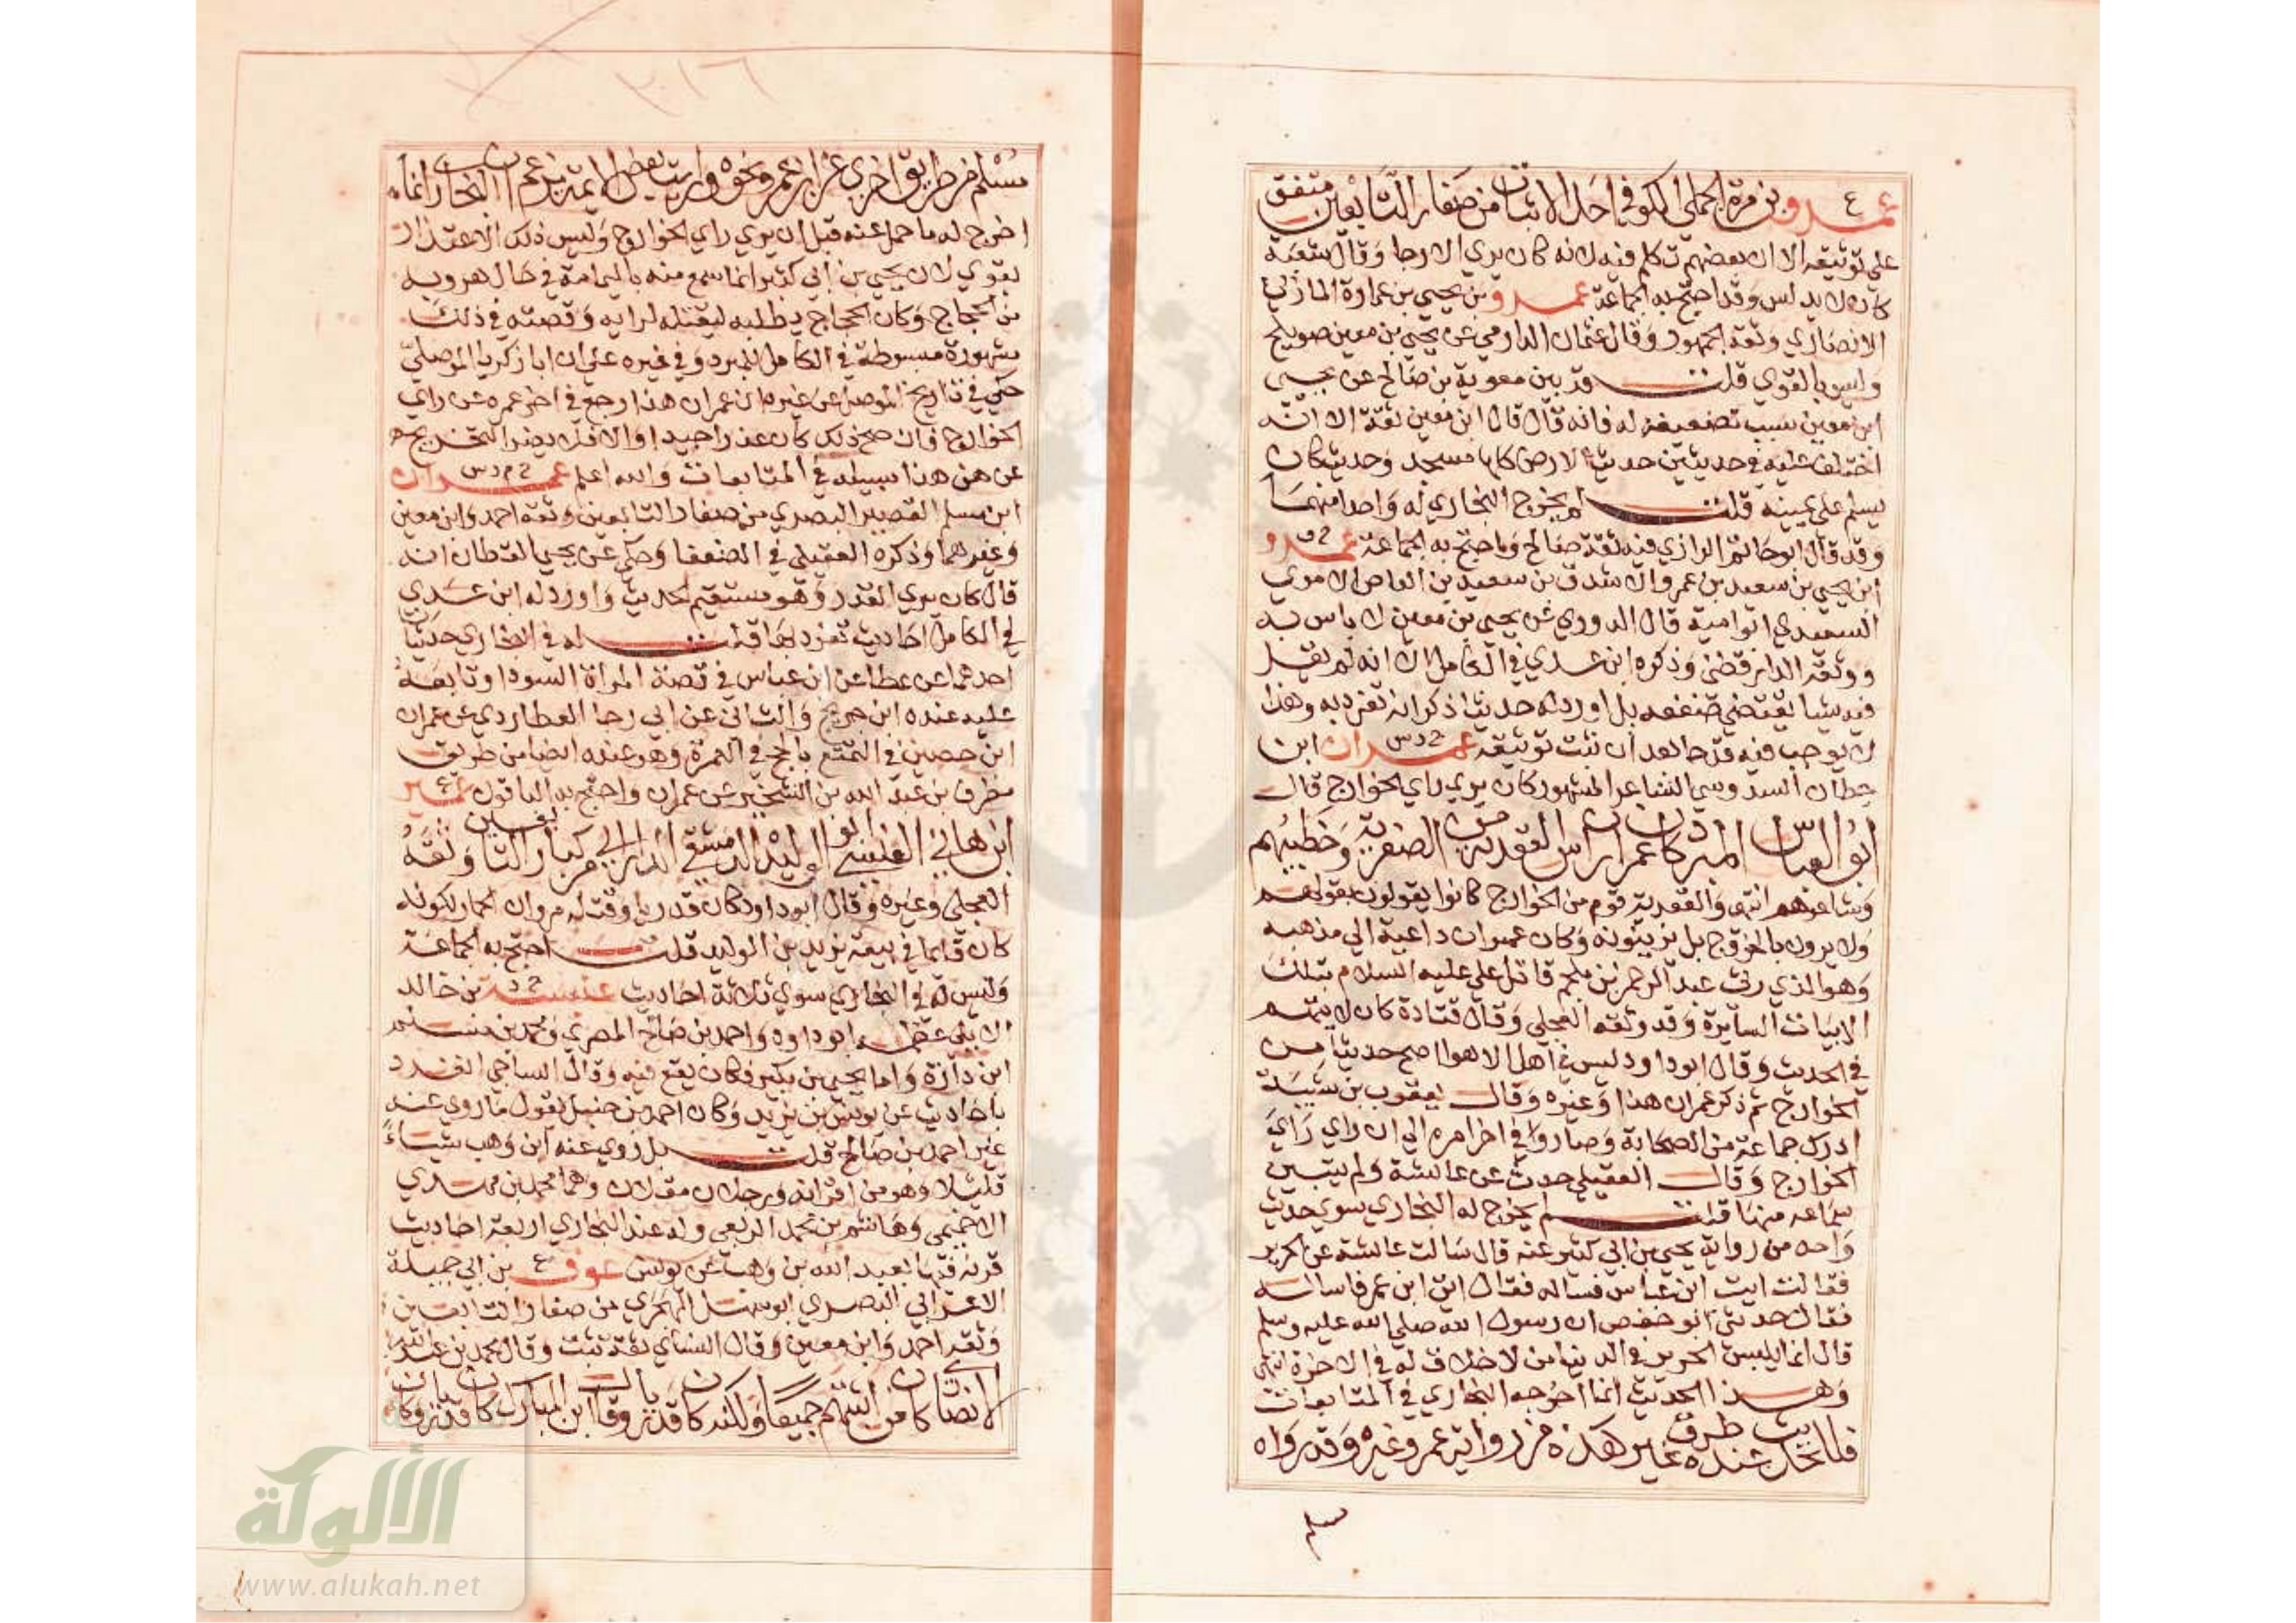 عمرو ع بن مرة الجملي الكوفي احد الاثبات من صغار التابعين متفق
علي توثيقه الا ان بعضهم تكلم فيه لانه كان يري الارجا وقال شعبة
كان لا يدلس وقد احتج به الجماعة عمرو بن يحيي بن عمارة المازني
الانصاري وثقه الجمهور وقال عثمان الدارمي عن يحيي بن معين صويلح
وليس بالقوي قلت وقد بين معوية بن صالح عن يحيي
ابن معين سبب تضعيفه له فانه قال قال ابن معين ثقة الا انه
اختلف عليه في حديثين حديث الارض كلها مسجد وحديث كان
يسلم علي يمينه قلت لم يخرج البخاري له واحدا منهما
وقد قال ابو حاتم الرازي فيه ثقة صالح واحتج به الجماعة عمرو خ ق
ابن يحيي بن سعيد بن عمرو الاشدق بن سعيد بن العاص الاموي
السعيدي ابو امية قال الدوري عن يحيي بن معين لا باس به
ووثقه الدارقطني وذكره ابن عدي في الكامل الا انه لم يقل
فيه شيا يقتضي ضعفه بل اورد له حديثا ذكر انه تفرد به وهذا
لا يوجب فيه قدحا بعد ان ثبت توثيقه عمران خ د س ابن
حطان السدوسي الشاعر المشهور كان يري راي الخوارج قال
ابو العباس المبرد كان عمران راس القعدية من الصفرية وخطيبهم
وشاعرهم انتهي والقعدية قوم من الخوارج كانوا يقولون بقولهم
ولا يرون بالخروج بل يزينونه وكان عمران داعية الي مذهبه
وهو الذي رثي عبد الرحمن بن ملجم قاتل علي عليه السلام بتلك
الابيات السايرة وقد وثقه العجلي وقال قتادة كان لا يتهم
في الحديث وقال ابو داود ليس في اهل الاهوا اصح حديثا من
الخوارج ثم ذكر عمران هذا وغيره وقال يعقوب بن شيبة
ادرك جماعة من الصحابة وصار في اخر امره الي ان راي راي
الخوارج وقال العقيلي حدث عن عائشة ولم يتبين
سماعه منها قلت لم يخرج له البخاري سوي حديث
واحد من رواية يحيي بن ابي كثير عنه قال سالت عائشة عن الحرير
فقالت ايت ابن عباس فساله فقال ايت ابن عمر فاساله
فقال حدثني ابو حفص ان رسول الله صلي الله عليه وسلم
قال انما يلبس الحرير في الدنيا من لا خلاق له في الاخرة انتهي
وهذا الحديث انما اخرجه البخاري في المتابعات
فللحديث عنده طرق غير هذه من رواية عمر وغيره وقد رواه
٣١٦
مسلم من طريق اخري عن ابن عمر ونحوه ورايت بعض الايمة يزعم ان البخاري انما
اخرج له ما حمل عنه قبل ان يري راي الخوارج وليس ذلك الاعتذار
بقوي لان يحيي بن ابي كثير انما سمع منه باليمامة في حال هروبه
من الحجاج وكان الحجاج يطلبه ليقتله لرايه وقصته في ذلك
مشهورة مبسوطة في الكامل للمبرد وفي غيره علي ان ابا زكريا الموصلي
حكي في تاريخ الموصل عن غيره ان عمران هذا رجع في اخر عمره عن راي
الخوارج فان صح ذلك كان عذرا جيدا والا فلا يضر التخريج
عن من هذا سبيله في المتابعات والله اعلم عمران خ م د س
ابن مسلم القصير البصري من صغار التابعين وثقه احمد وابن معين
وغيرهما وذكره العقيلي في الضعفا وحكي عن يحيي القطان انه
قال كان يري القدر وهو مستقيم الحديث واورد له ابن عدي
في الكامل احاديث تفرد بها قلت له في البخاري حديثان
احدهما عن عطا عن ابن عباس في قصة المراة السودا وتابعه
عليه عنده ابن جريج والثاني عن ابي رجا العطاردي عن عمران
ابن حصين في التمتع بالحج في العمرة وهو عنده ايضا من طريق
مطرف بن عبد الله بن الشخير عن عمران واحتج به الباقون عمير ع
ابن هاني العنسي ابو الوليد الدمشقي الداراني من كبار التابعين وثقه
العجلي وغيره وقال ابو داود كان قدريا وقتله مروان الحمار لكونه
كان قايما في بيعة يزيد بن الوليد قلت احتج به الجماعة
وليس له في البخاري سوي ثلاثة احاديث عنبسة خ د بن خالد
الايلي عظمه ابو داود واحمد بن صالح المصري ومحمد بن مسلم
ابن وارة واما يحيي بن بكير فكان يقع فيه وقال الساجي انفرد
باحاديث عن يونس بن يزيد وكان احمد بن حنبل يقول ما روي عنه
غير احمد بن صالح قلت بل روي عنه ابن وهب شياء
قليلا وهو من اقرانه ورجلان مقلان وهما محمد بن مهدي
الاخميمي وهاشم بن محمد الربعي وله عند البخاري اربعة احاديث
قرنه فيها بعبد الله بن وهب عن يونس عوف ع بن ابي جميلة
الاعرابي البصري ابو سهل الهجري من صغار التابعين
وثقه احمد وابن معين وقال النسائي ثقة ثبت وقال محمد بن عبد الله
الانصاري كان من اثبتهم جميعا ولكنه كان قدريا وقال ابن المبارك كان قدريا وكان
الألوكة
www.alukah.net